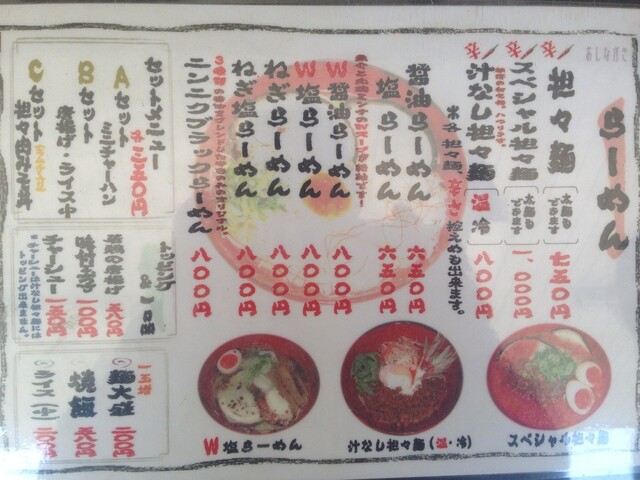 おしながき
らーめん
担々麺
太麺もできます
七五〇円
スペシャル担々麺
太麺もできます
一、〇〇〇円
汁なし担々麺
温 冷
八〇〇円
※各 担々麺、辛さ控えめも出来ます。
醤油らーめん 六五〇円
塩らーめん 六五〇円
W醤油らーめん 八〇〇円
W塩らーめん 八〇〇円
ねぎ醤油らーめん 八〇〇円
ねぎ塩らーめん 八〇〇円
ニンニクブラックらーめん 八〇〇円
セットメニュー
各二五〇円
Aセット
ミニチャーハン
Bセット
唐揚げ・ライス小
Cセット
担々肉みそ丼
トッピング
&一品
味付玉子 一〇〇円
チャーシュー 一五〇円
※チャーシューは汁なし担々麺にはトッピング出来ません。
麺大盛 二〇〇円
焼飯
ライス(小)
スペシャル担々麺
汁なし担々麺(温・冷)
W塩らーめん